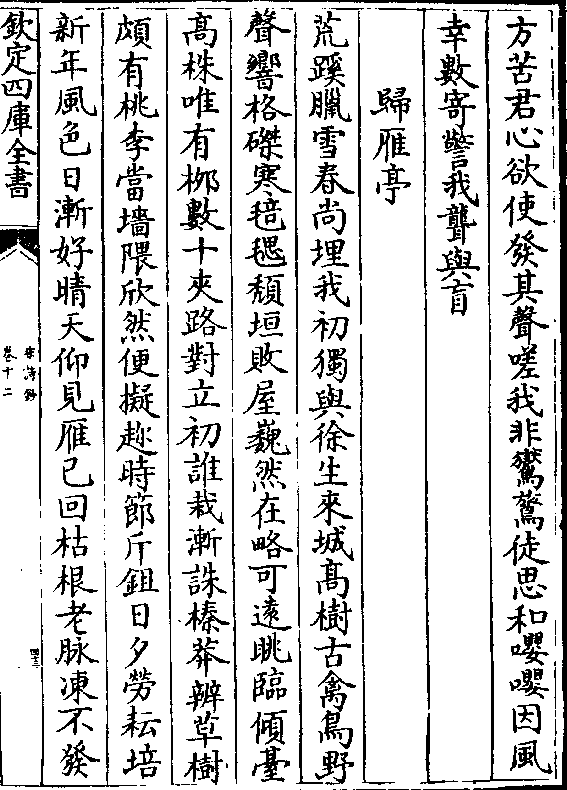 方苦君心欲使發其聲嗟我非鸞鷟徒思和嚶嚶因風
幸數寄警我聾與盲
歸雁亭
荒蹊臘雪春尚埋我初獨與徐生來城髙樹古禽鳥野
聲響格磔寒毰毸頽垣敗屋巍然在略可遠眺臨傾臺
髙株唯有栁數十夾路對立初誰栽漸誅榛莽辨草樹
頗有桃李當墻隈欣然便擬趂時節斤鉏日夕勞耘培
新年風色日漸好晴天仰見雁已回枯根老脉凍不發
欽定四庫全書
宋詩鈔
卷十二
四十三